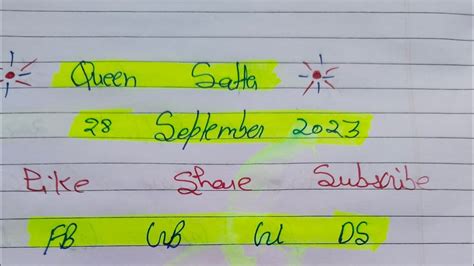 Queen Satta
28 September 2023
Like Share Subscribe
FB GB GL DS